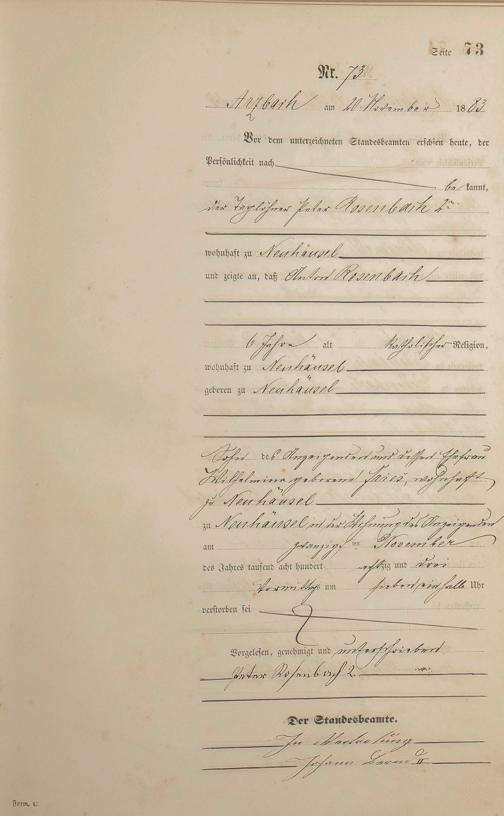 Seite 73
Nr. 73
Arzbach am 20. November 1883
Vor dem unterzeichneten Standesbeamten erschien heute, der
Persönlichkeit nach
be kannt,
der Taglöhner Peter Rosenbach 2
wohnhaft zu Neuhäusel
und zeigte an, daß Anton Rosenbach
6 Jahre alt katholischer Religion,
wohnhaft zu Neuhäusel
geboren zu Neuhäusel
Sohn des Anzeigenden und dessen Ehefrau
Wilhelmine geborene Fries, wohnhaft
zu Neuhäusel
zu Neuhäusel in der Wohnung des Anzeigenden
am zwanzigsten November
des Jahres tausend acht hundert achtzig und drei
Vormittags um sieben ein halb Uhr
verstorben sei
Vorgelesen, genehmigt und unterschrieben
Peter Rosenbach 2
Der Standesbeamte.
In Vertretung
Johann
Form. C.